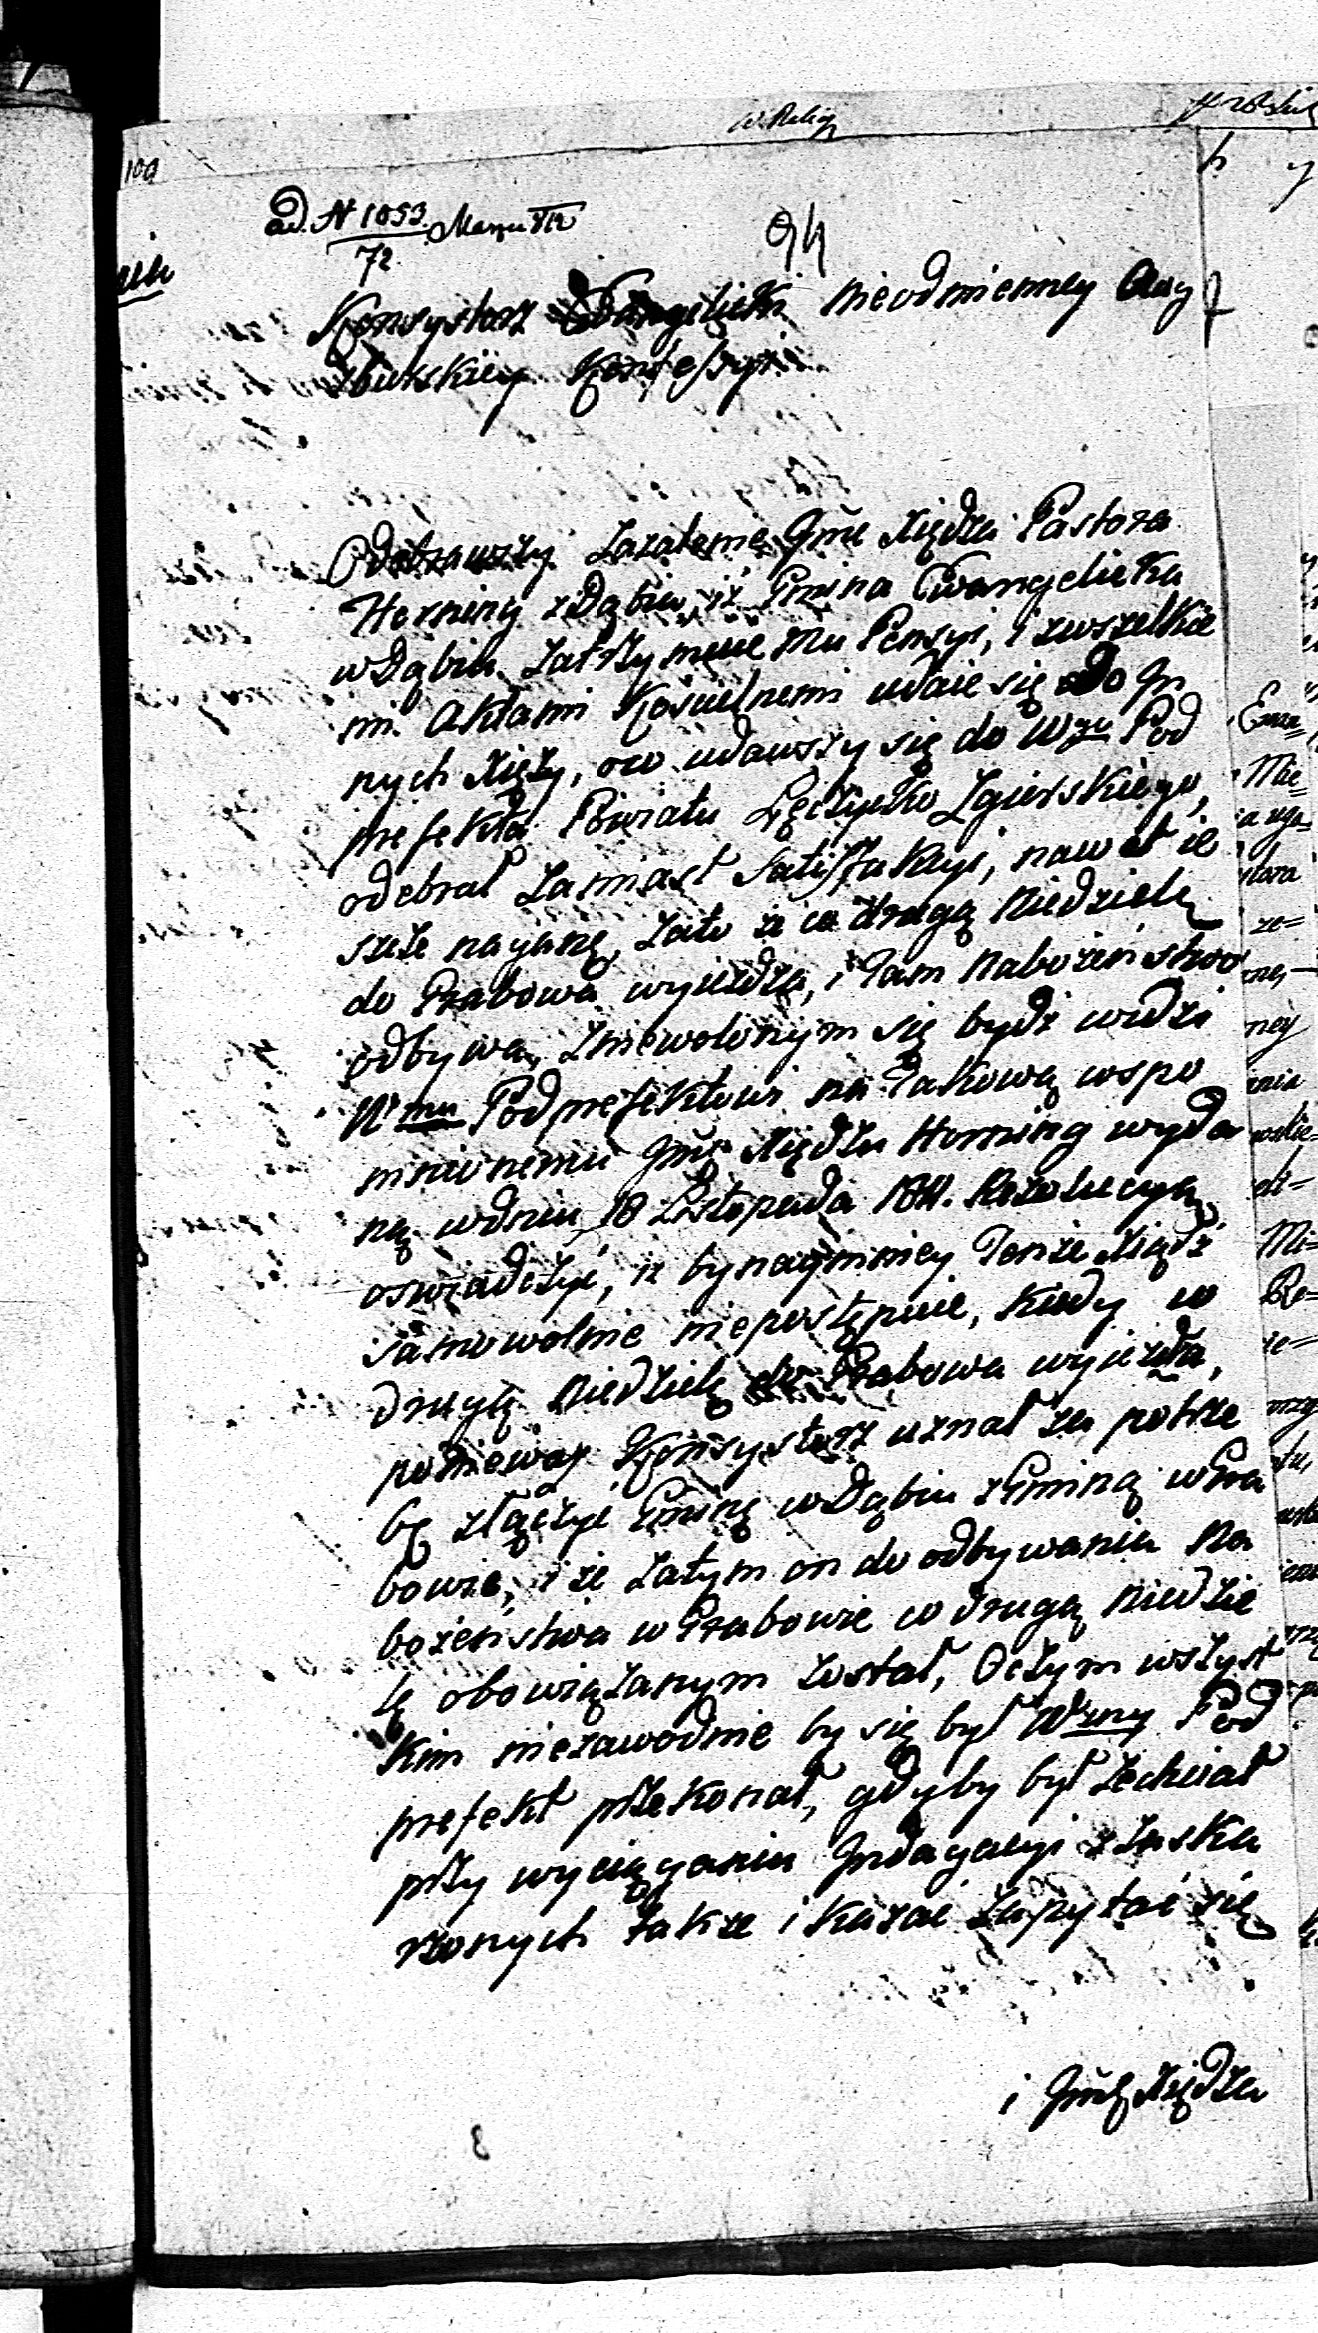 w Relig
100
ad. N 1053. Marzu 812
72
94
Konsystorz Ewangelicki nieodmienney Aug
zburskiey Konfessyi
Odebrawszy zażalenie Jmć Xiędza Pastora
Horning z Dąbia, iż Gmina Ewangelicka
w Dąbiu zatrzymuie mu Pensyi, i z wszelkie
mi Aktami Kościelnemi udaie się do In
nych Xięży, oco udawszy się do Wgo Pod
prefekta Powiatu Łęczycko Zgierskiego,
odebrał zamiast satisfakcyi, nawet ie
szcze naganę, zato że co drugą niedzielę
do Grabowa wyieżdża, i tam Nabożeństwo
odbywa, zniewolonym się bydź widzi
Wmu Podprefektowi na takową wspo
mnionemu Jmć Xiędzu Horning wyda
ną w dniu 18 Listopada 1811. Rezolucyą
oswiadczyć, iż bynaymniey Tenże Xiądz
samowolnie niepostępuie, kiedy co
drugą Niedzielę do Grabowa wyieżdża,
ponieważ Konsystorz uznał za potrze
bę złączyć Gminę w Dąbiu z Gminą w Gra
bowie, i że zatym on do odbywania Na
bożeństwa w Grabowie co drugą Niedzie
lę obowiązanym został, Oczym wszyst
kim niezawodnie by się był Wzny Pod
prefekt przekonał, gdyby był zechciał
przy wyciąganiu Indagacyi z zaska
rzonych także i kazać zapytać się
i Jmć Xiędza